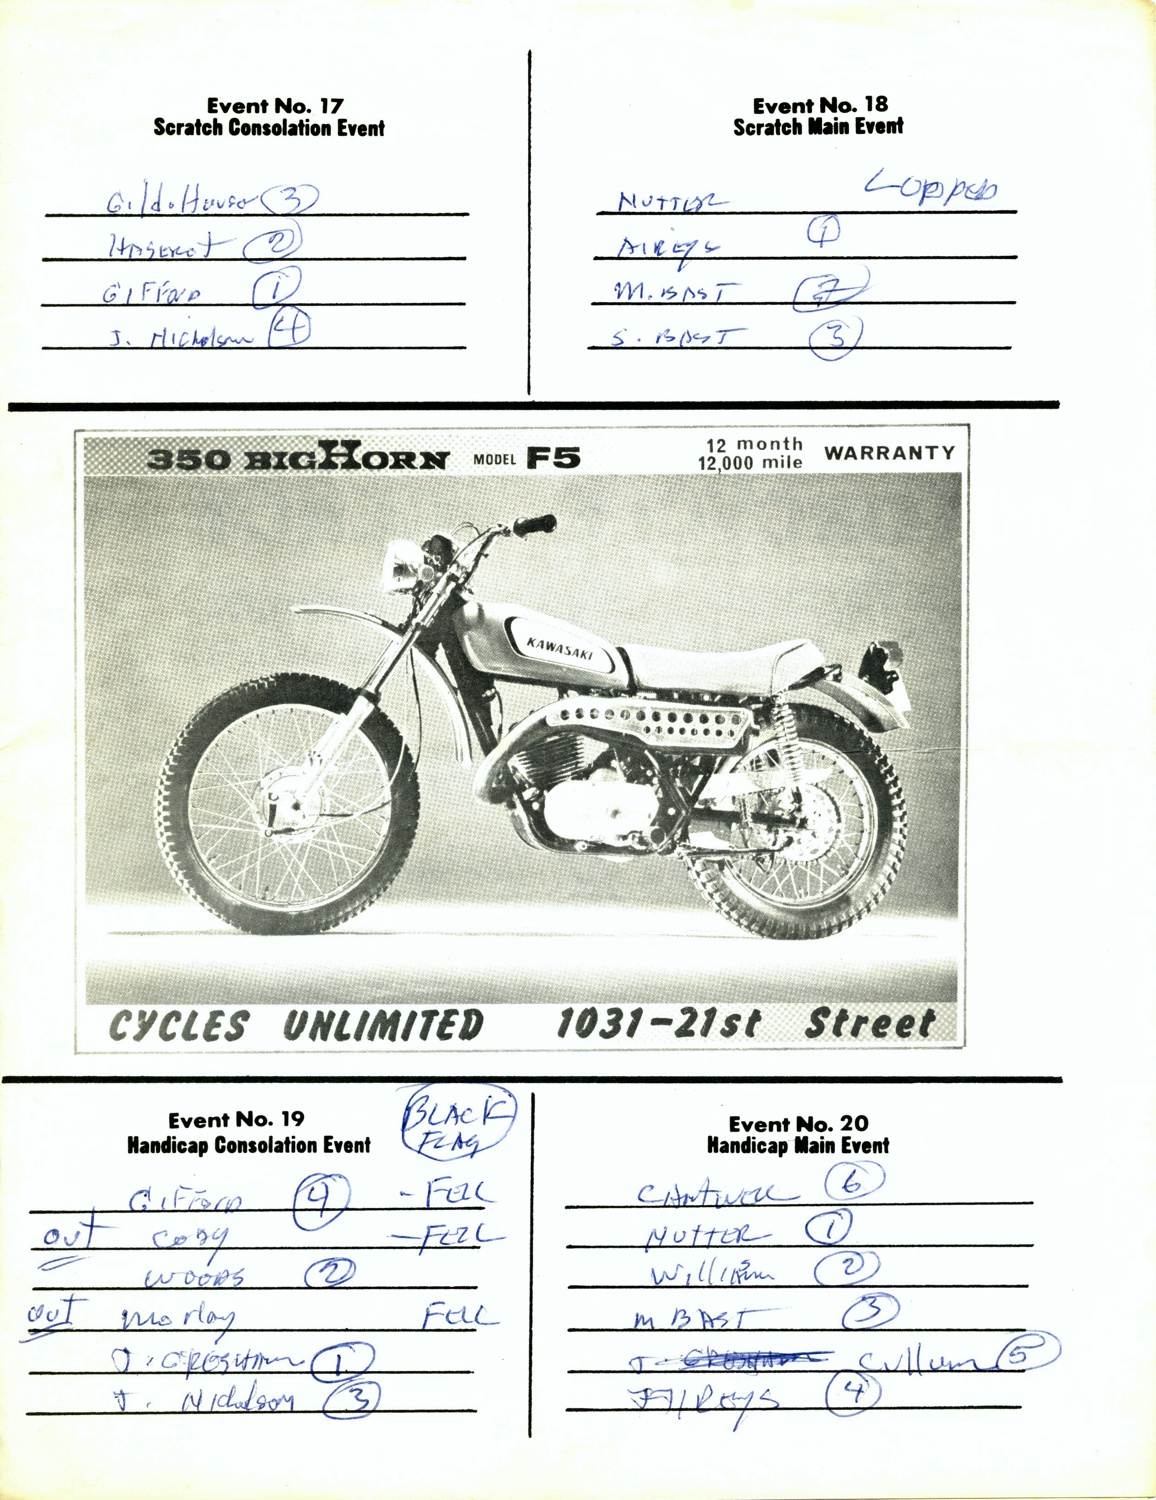 Event No. 17
Scratch Consolation Event
3
2
GIFFORD 1
J. Nicholson 4
Event No. 18
Scratch Main Event
NUTTER LOPPED
AIREYS 1
M. BAST 2
S. BAST 3
350 BIGHORN MODEL F5
12 month
12,000 mile WARRANTY
KAWASAKI
CYCLES UNLIMITED 1031-21st Street
Event No. 19
Handicap Consolation Event
BLACK
FLAG
GIFFORD 4 - FELL
OUT CODY - FELL
WOODS 2
OUT Morlay FELL
J. GRESHAM 1
J. Nicholson 3
Event No. 20
Handicap Main Event
CANTWELL 6
NUTTER 1
William 2
M BAST 3
J. Cullum 5
AIREYS 4